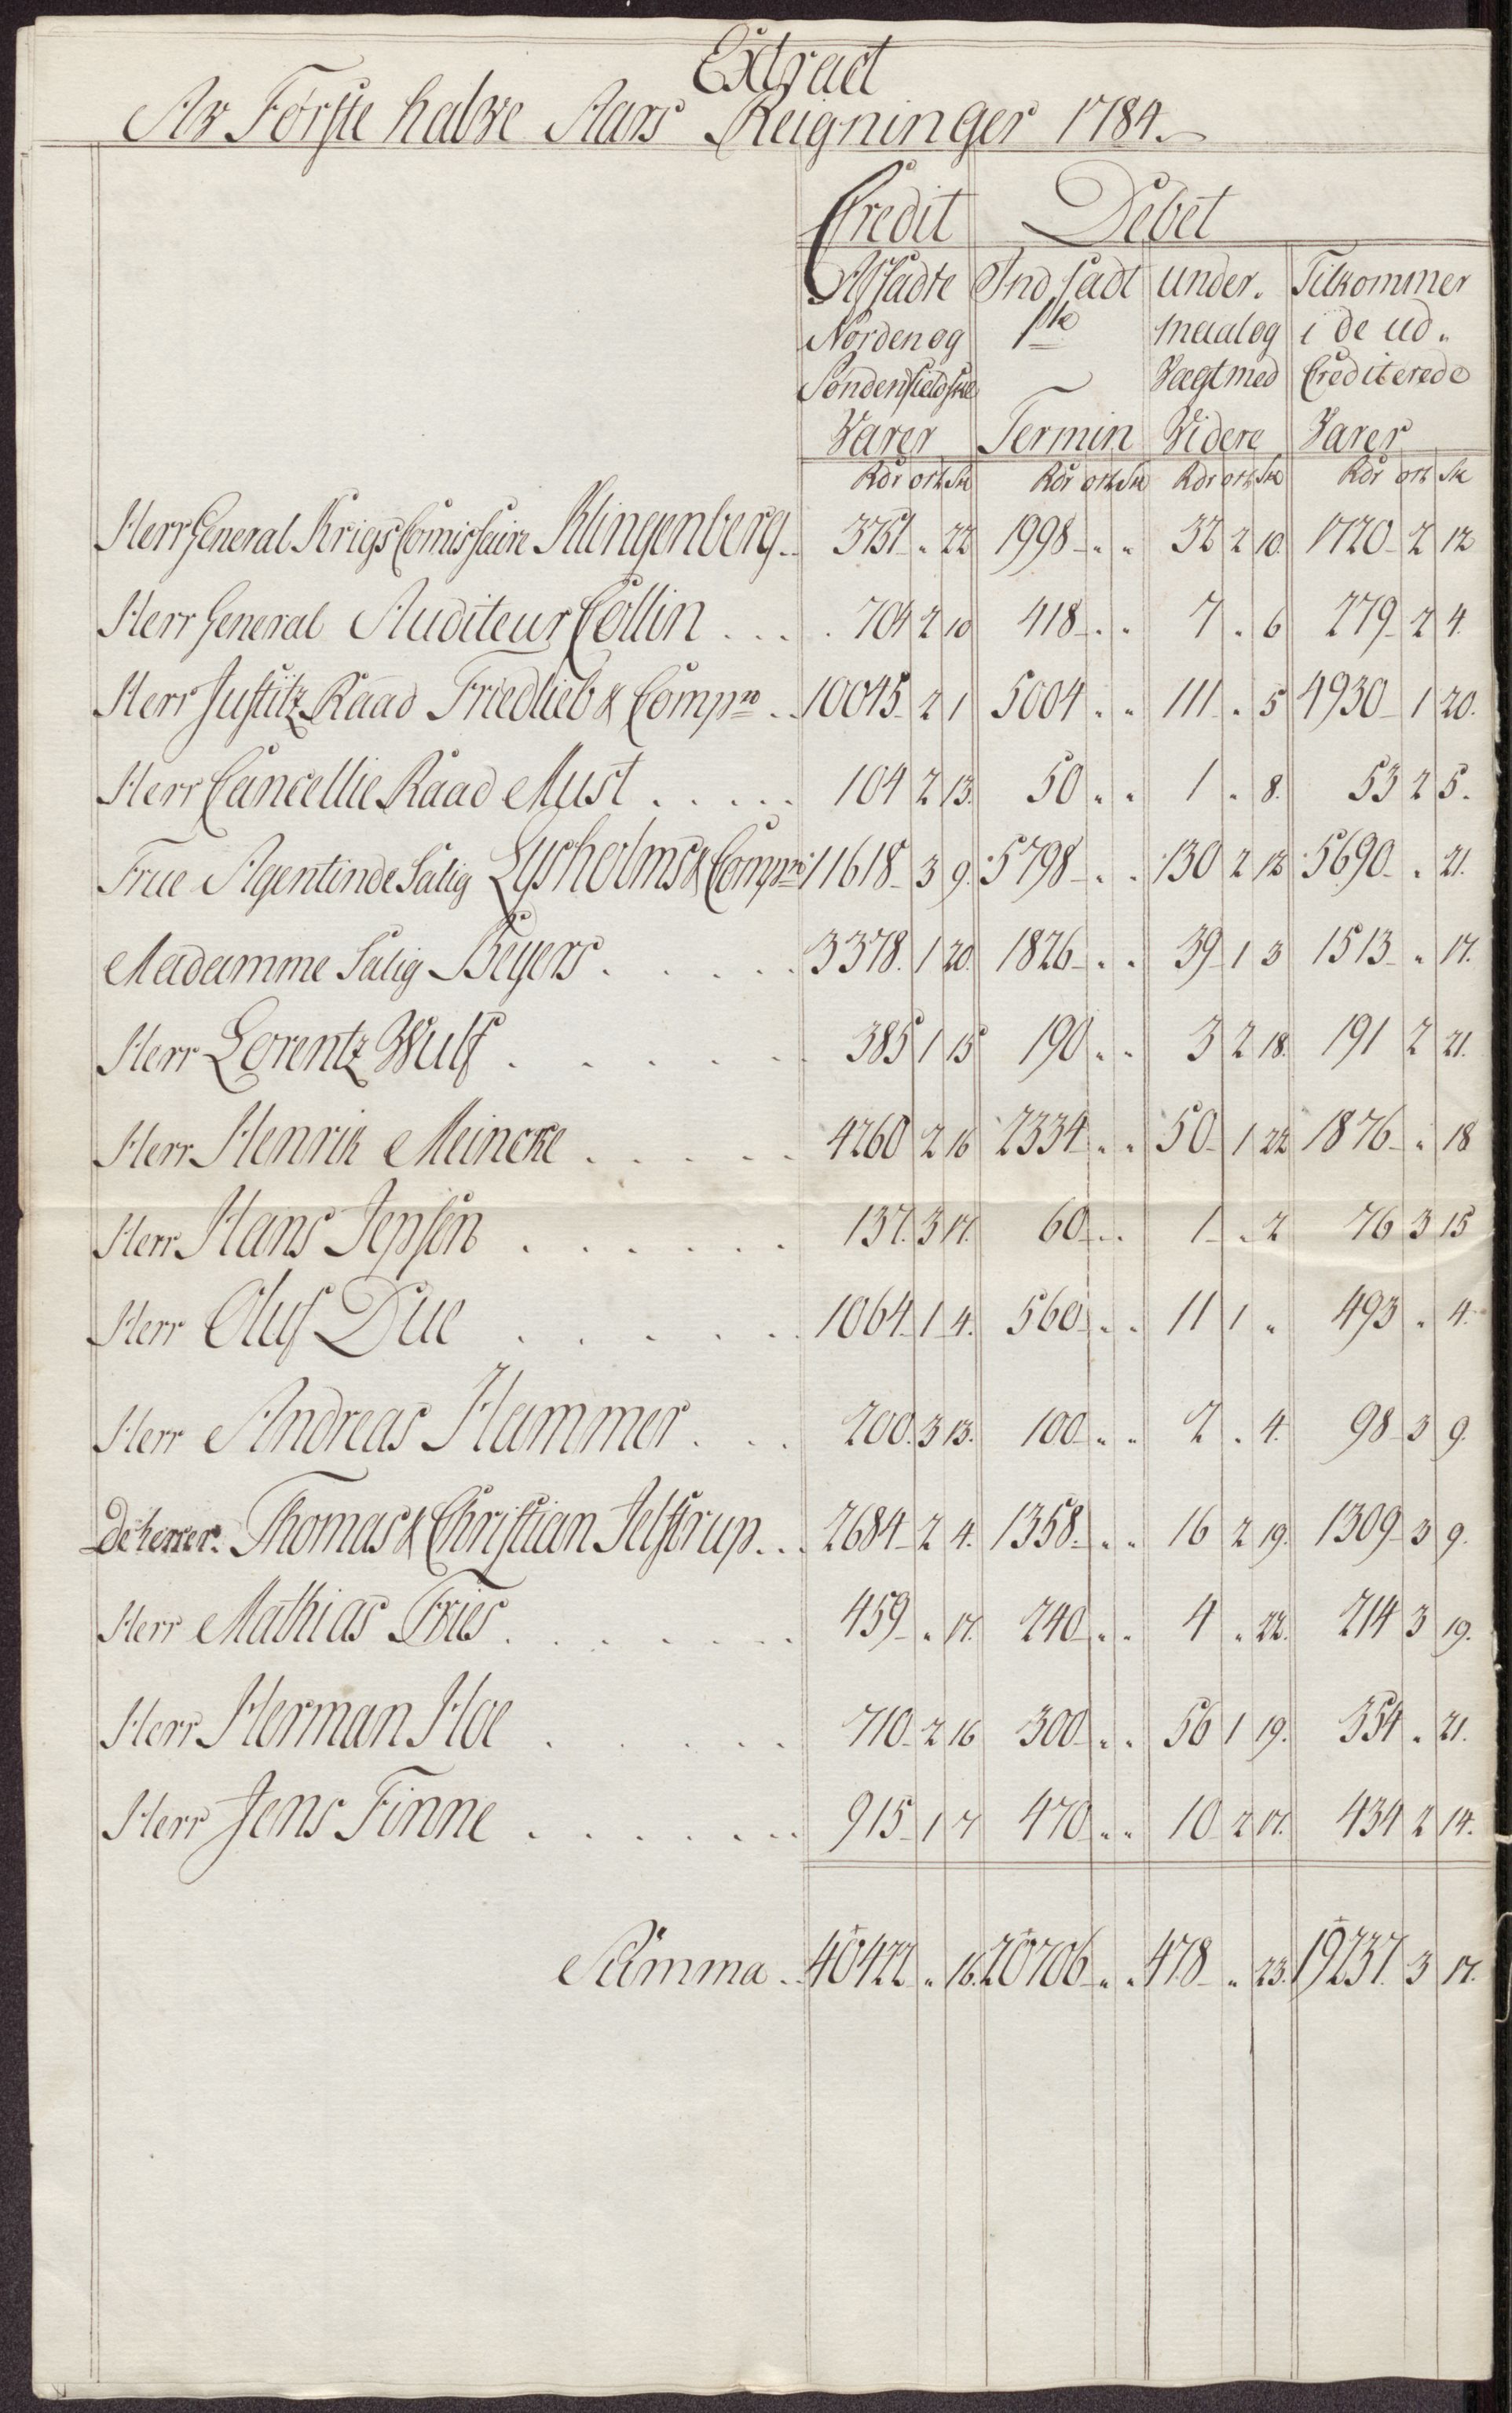 Extract
Av Første halve Aars Reigninger 1784.
Credit Debet
Afsadte Ind sadt under. Tilkommer
Norden og 1ste maal og i de ud„
Søndenfieldske Vægt med Crediterede
Varer Termin Videre Varer
Rdr ort Sk Rdr ort Sk Rdr ort Sk Rdr ort Sk
Herr General Krigs Comissaire Klingenberg.. 3751 „ 22 1998 „ „ 32 2 10. 1720 2 12
Herr General Auditeur Collin .... 704 2 10 418 „ „ 7 „ 6 279 2 4.
Herr Justitz Raad Friedlieb & Compe .. 10045 2 1 5004 „ „ 111 „ 5 4930 1 20.
Herr Cancellie Raad Must ..... 104 2 13. 50 „ „ 1 „ 8. 53 2 5.
Frue Agentinde Salig Lysholms & Compe 11618 3 9. 5798 „ „ 130 2 12 5690 „ 21.
Madamme Salig Beyers ..... 3378. 1 20. 1826 „ „ 39 1 3 1513 „ 17.
Herr Lorentz Wulf ...... 385 1 15 190 „ „ 3 2 18. 191 2 21.
Herr Henrik Meincke ..... 4260 2 16 2334 „ „ 50 1 22 1876 „ 18
Herr Hans Jepsen ...... 137. 3 17. 60 „ „ 1 „ 2 76 3 15
Herr Oluf Due ...... 1064 1 4. 560 „ „ 11 1 „ 493 „ 4.
Herr Andreas Hammer ... 200. 3 13. 100 „ „ 2 „ 4. 98 3 9.
De herrer. Thomas & Christian Jelstrup... 2684 2 4. 1358. „ „ 16 2 19. 1309 3 9.
Herr Mathias Fries ....... 459 „ 17. 240 „ „ 4 „ 22. 214 3 19.
Herr Herman Hoe ..... 710 2 16 300 „ „ 56 1 19. 354 „ 21.
Herr Jens Finne ....... 915 1 7 470 „ „ 10 2 17. 434 2 14.
Summa .. 40422 „ 16. 20706 „ „ 478 „ 23. 19237. 3 17.